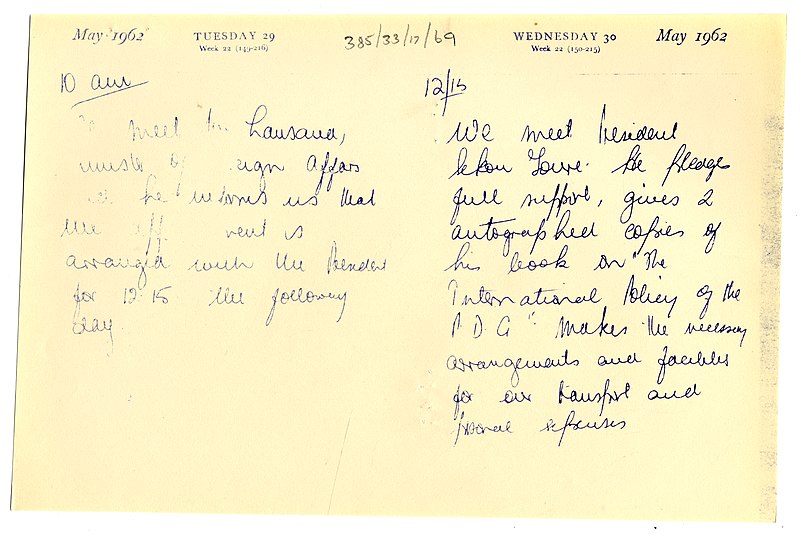 May 1962
TUESDAY 29
Week 22 (149-216)
385/33/17/69
WEDNESDAY 30
Week 22 (150-215)
May 1962
10 am
meet Lansana,
affars
he informs us that
the
arranged with the President
for 12.15 the following
day.
12/15
We meet President
Sekou Toure. He pledges
full support, gives 2
autographed copies of
his book on "The
International Policy of the
P.D.G" makes the necessary
arrangements and facilities
for our transport and
personal expenses